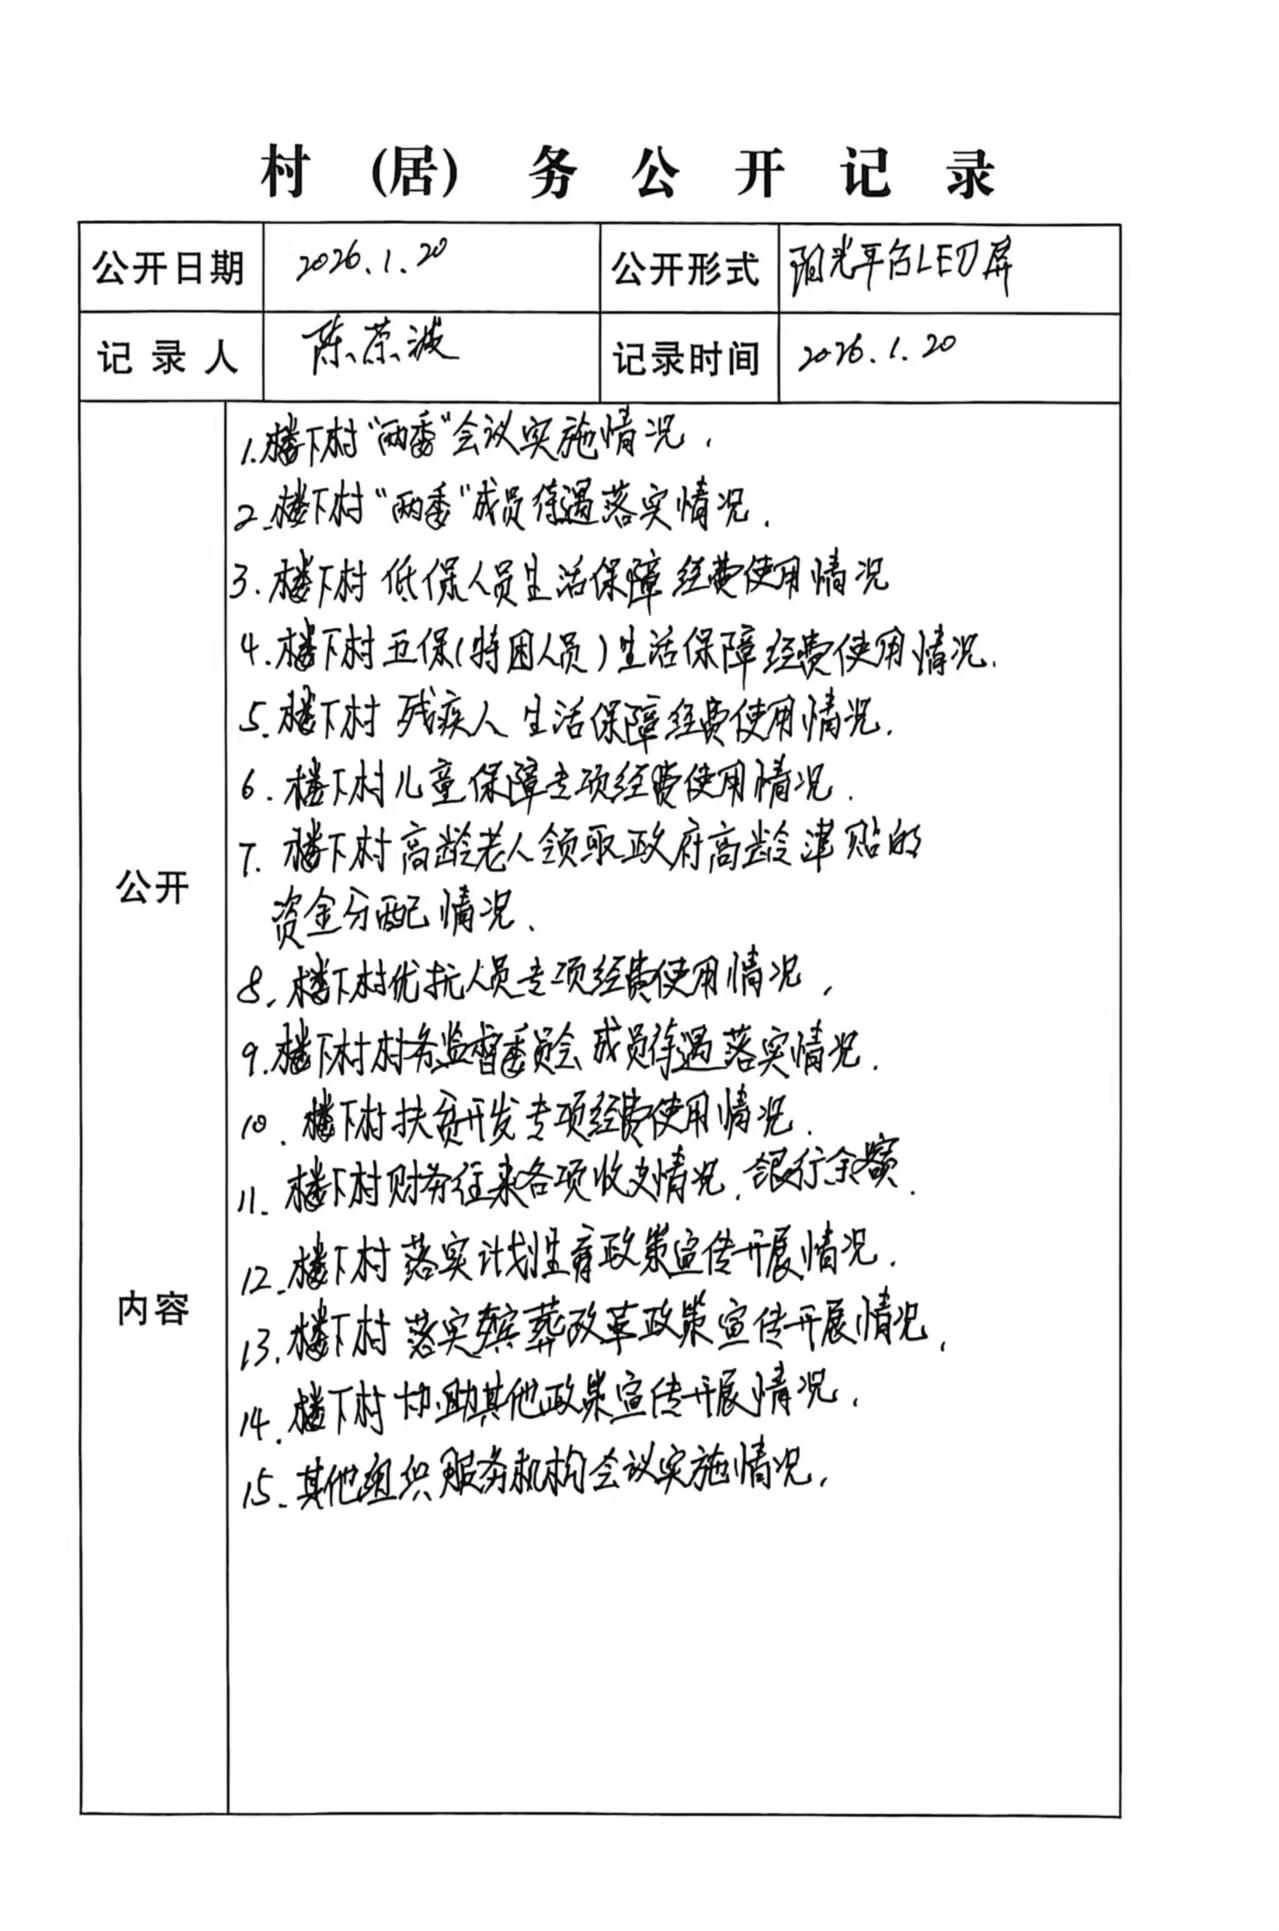 村（居）务公开记录
公开日期 2026.1.20 公开形式 阳光平台LED屏
记录人 陈荣波 记录时间 2026.1.20
公开内容
1.楼下村“两委”会议实施情况.
2.楼下村“两委”成员待遇落实情况.
3.楼下村低保人员生活保障经费使用情况
4.楼下村五保(特困人员)生活保障经费使用情况.
5.楼下村残疾人生活保障经费使用情况.
6.楼下村儿童保障专项经费使用情况.
7.楼下村高龄老人领取政府高龄津贴的
资金分配情况.
8.楼下村优抚人员专项经费使用情况.
9.楼下村村务监督委员会成员待遇落实情况.
10.楼下村扶贫开发专项经费使用情况.
11.楼下村财务往来各项收支情况、银行余额.
12.楼下村落实计划生育政策宣传开展情况.
13.楼下村落实殡葬改革政策宣传开展情况.
14.楼下村协助其他政策宣传开展情况.
15.其他组织服务机构会议实施情况.